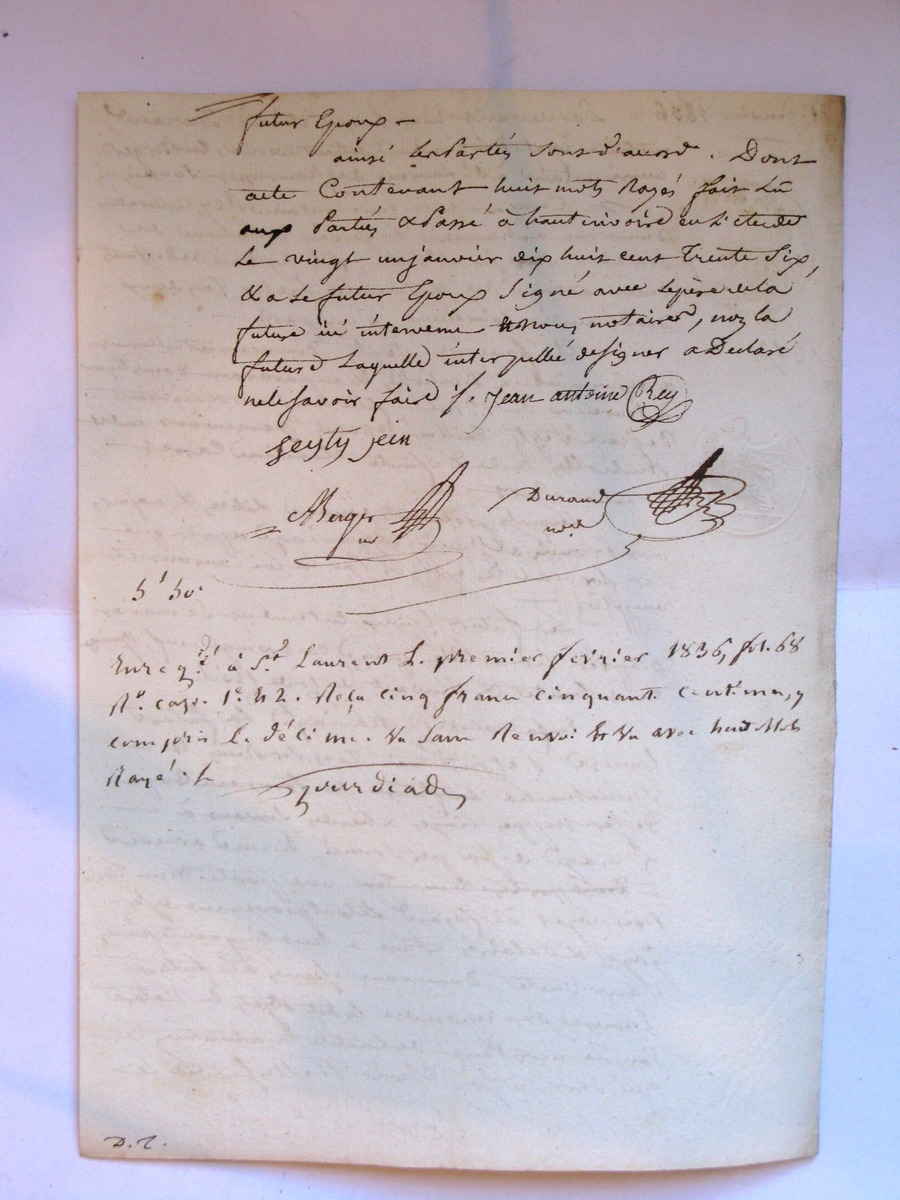 futur Epoux –
ainsi les Parties sont d'accord. Dont
acte Contenant huit mots Rayés fait Lu
aux Parties & Passé à hautrivoire en L'etude
Le vingt un janvier dix huit cent Trente Six,
& a Le futur Epoux Signé avec le père de la
future ici intervenu & nous notaires, non la
future Laquelle interpellée de signer a Declaré
ne le Savoir faire ./. Jean antoine Rey
jean
Berger
Durand
nre
5f 50c
Enregré à St Laurent Le premier février 1836, fol. 68
Ro case 1e & 2. Reçu cinq francs cinquante centimes, y
compris le décime. Vu sans Renvoi & Vu avec huit Mots
Rayés
D. J.